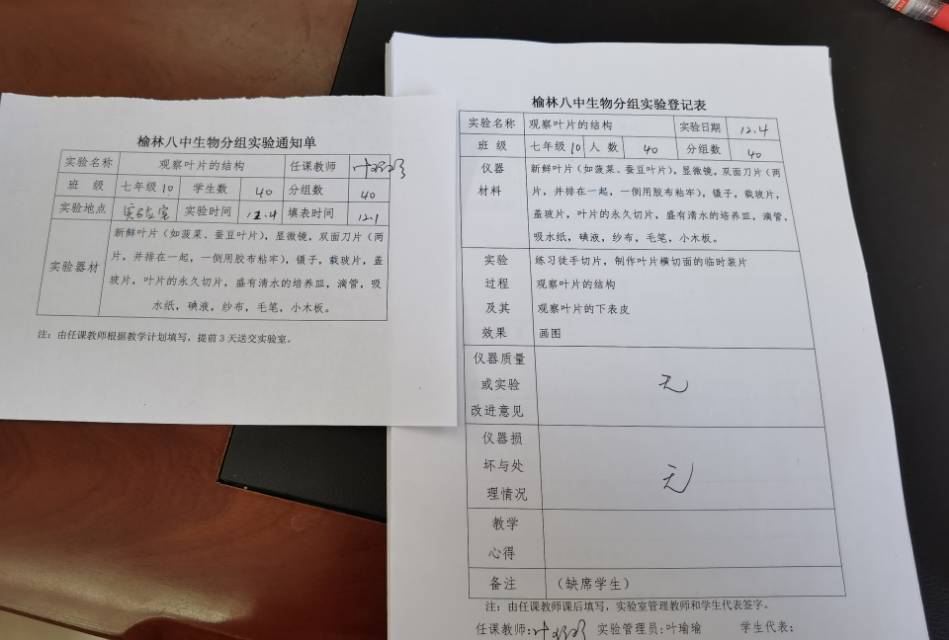 榆林八中生物分组实验通知单
实验名称 观察叶片的结构 任课教师
班 级 七年级 10 学生数 40 分组数 40
实验地点 实验室 实验时间 12.4 填表时间 12.1
实验器材
新鲜叶片（如菠菜、蚕豆叶片），显微镜，双面刀片（两
片，并排在一起，一侧用胶布粘牢），镊子，载玻片，盖
玻片，叶片的永久切片，盛有清水的培养皿，滴管，吸
水纸，碘液，纱布，毛笔，小木板。
注：由任课教师根据教学计划填写，提前 3 天送交实验室。
榆林八中生物分组实验登记表
实验名称 观察叶片的结构 实验日期 12.4
班 级 七年级 10 人 数 40 分组数 40
仪器
材料
新鲜叶片（如菠菜、蚕豆叶片），显微镜，双面刀片（两
片，并排在一起，一侧用胶布粘牢），镊子，载玻片，
盖玻片，叶片的永久切片，盛有清水的培养皿，滴管，
吸水纸，碘液，纱布，毛笔，小木板。
实验 练习徒手切片，制作叶片横切面的临时装片
过程 观察叶片的结构
及其 观察叶片的下表皮
效果 画图
仪器质量
或实验 无
改进意见
仪器损
坏与处 无
理情况
教学
心得
备注 （缺席学生）
注：由任课教师课后填写，实验室管理教师和学生代表签字。
任课教师: 实验管理员:叶瑜瑜 学生代表: